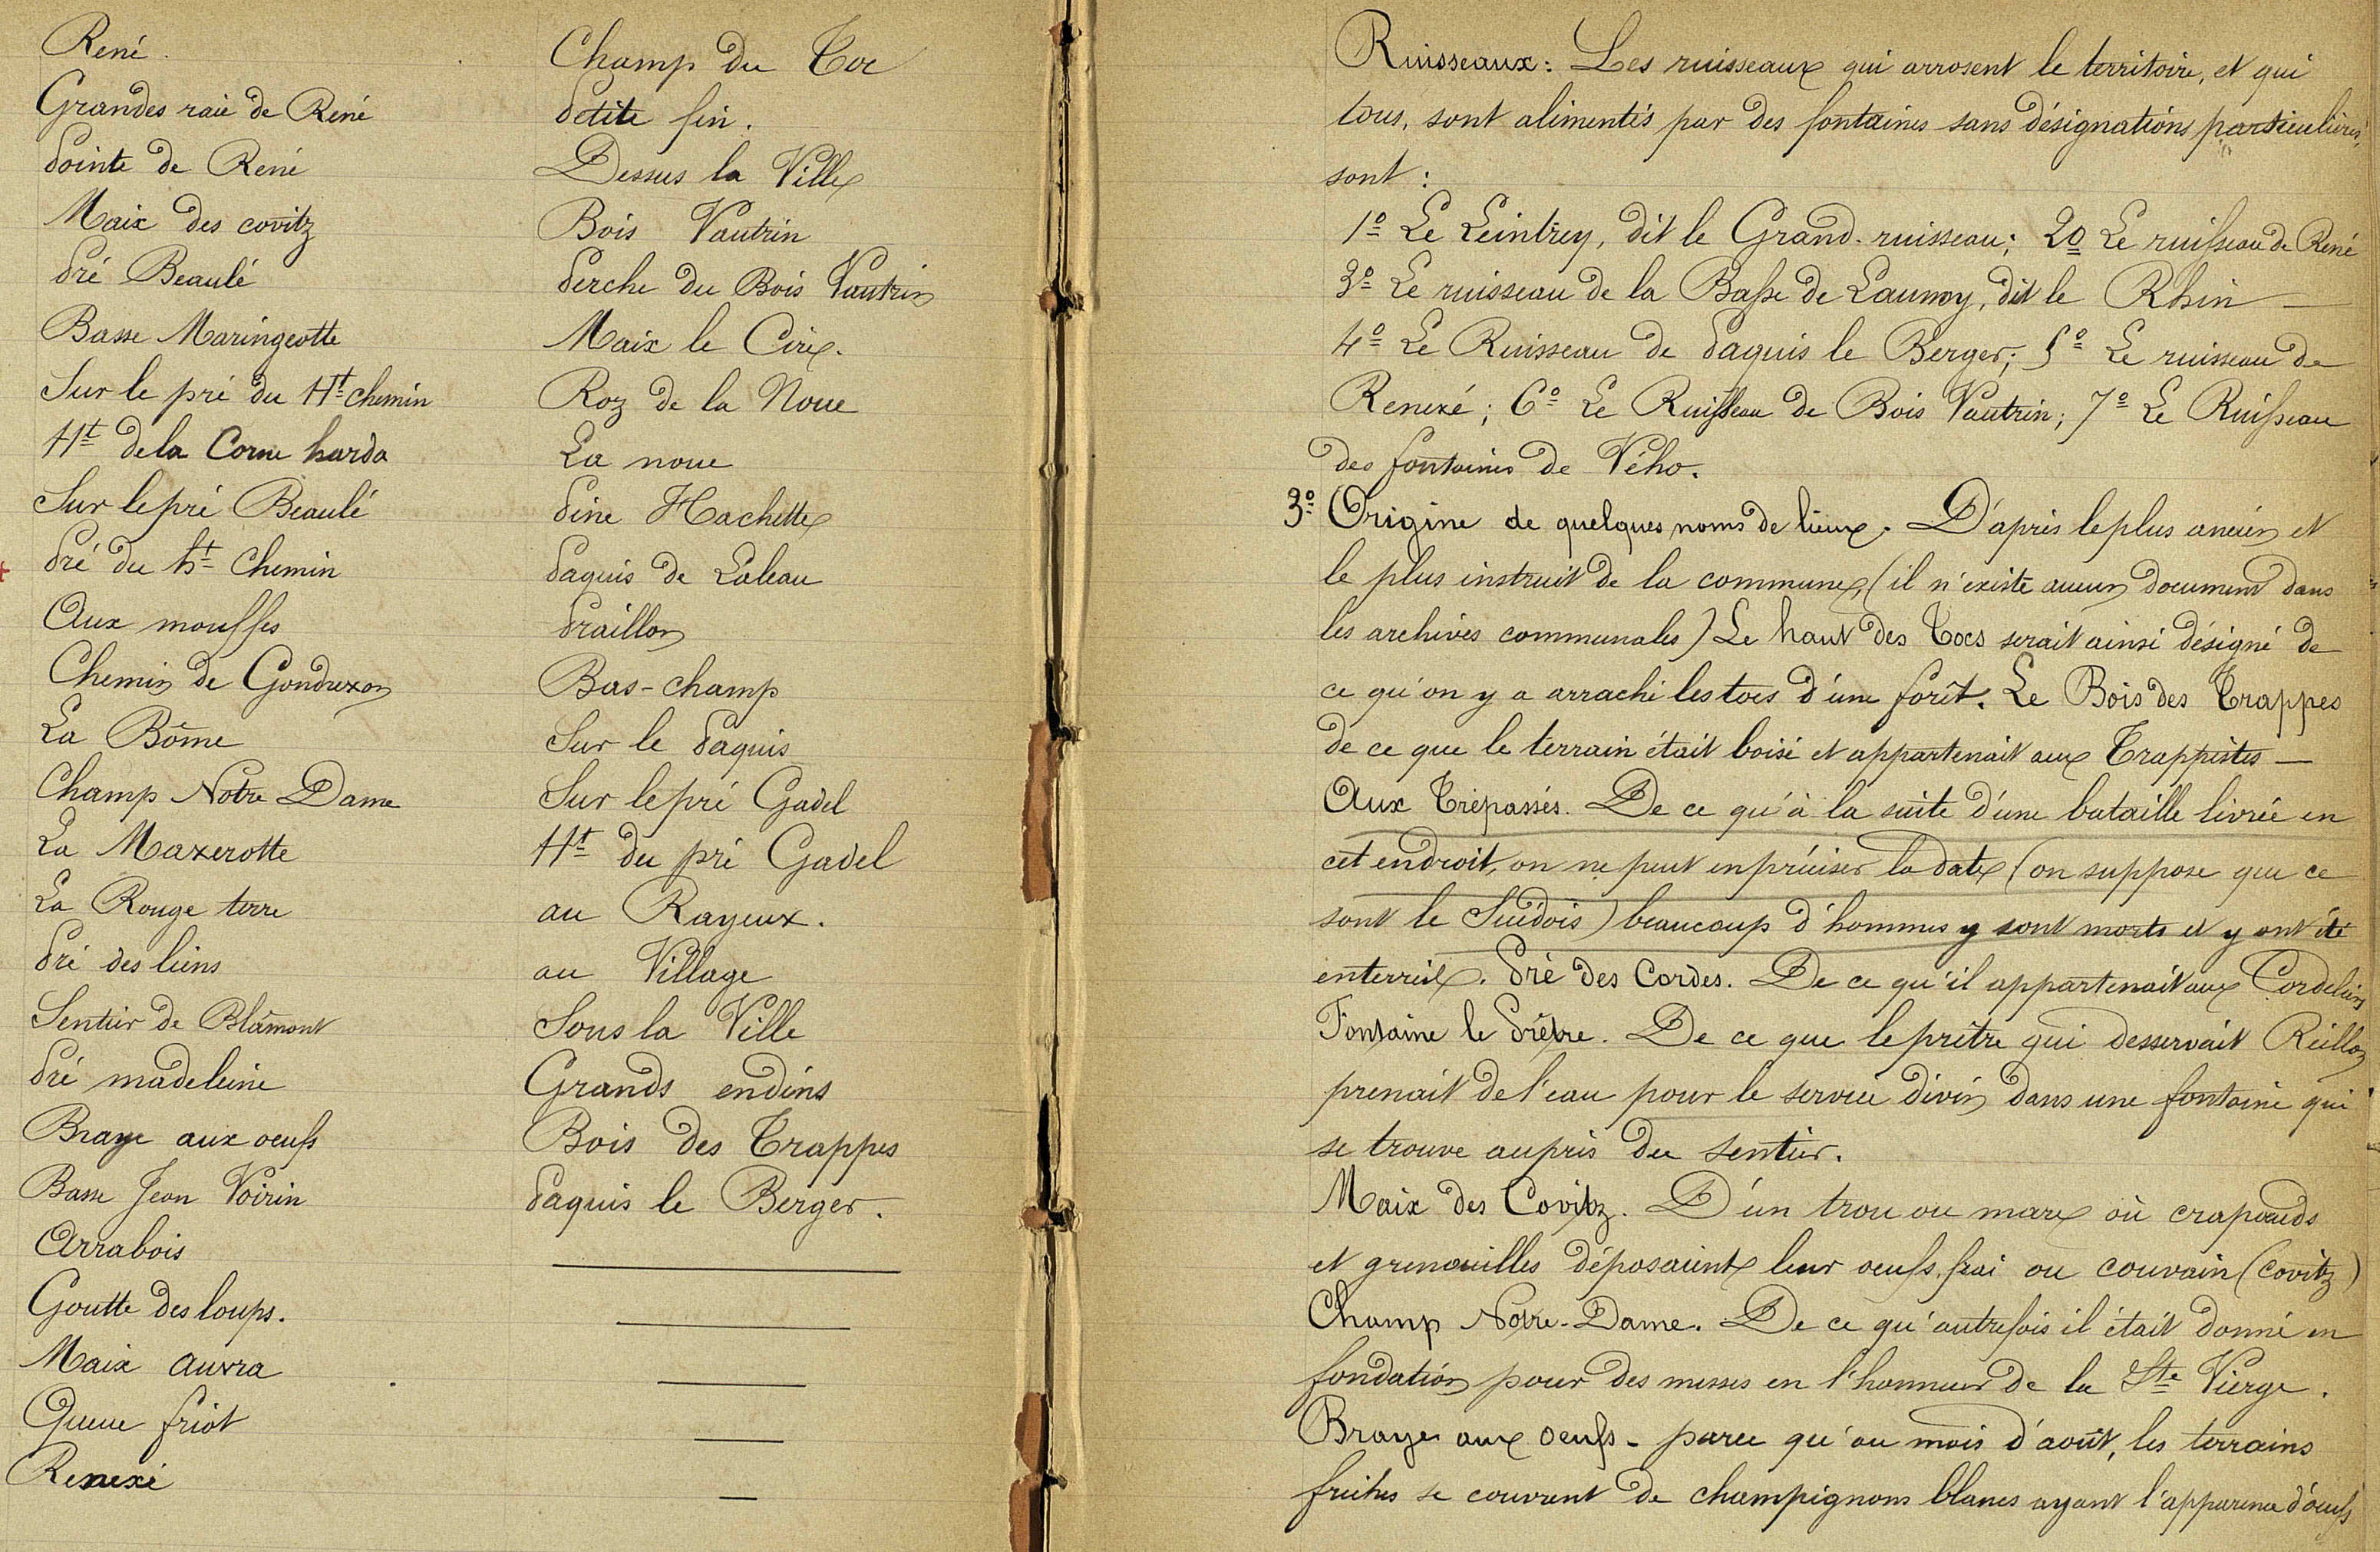 René
Grandes raie de René
Pointe de René
Maix des covitz
Pré Beaulé
Basse Maringeotte
Sur le pré du Ht chemin
Ht de la Corne harda
Sur le pré Beaulé
Pré du ht Chemin
Aux mouffes
Chemin de Gondrexon
La Bôme
Champ Notre Dame
La Mazerotte
La Rouge terre
Pré des liens
Sentier de Blâmont
Pré madeleine
Braye aux oeufs
Basse Jean Voirin
Arrabois
Goutte des loups.
Maix auvra
Queue friot
Renexé
Champ du Toc
Petite fin.
Dessus la Ville
Bois Vautrin
Perche du Bois Vautrin
Maix le Cire.
Roz de la Noue
La noue
Pine Hachette
Paquis de Laleau
Praillon
Bas-champ
Sur le Paquis
Sur le pré Gadel
Ht du pré Gadel
au Rayeux.
au Village
Sous la Ville
Grands endins
Bois des Trappes
Paquis le Berger.
Ruisseaux: Les ruisseaux qui arrosent le territoire, et qui
tous, sont alimentés par des fontaines sans désignations particulières,
sont :
1º Le Leintrey, dit le Grand-ruisseau; 2º Le ruisseau de René
3º Le ruisseau de la Basse de Launoy, dit le Rhin —
4º Le Ruisseau de Paquis le Berger; 5º Le ruisseau de
Renexé; 6º Le Ruisseau de Bois Vautrin; 7º Le Ruisseau
des fontaines de Vého.
3º Origine de quelques noms de lieux. D'après le plus ancien et
le plus instruit de la commune, (il n'existe aucun document dans
les archives communales) Le haut des Tocs serait ainsi désigné de
ce qu'on y a arraché les tocs d'une forêt. Le Bois des Trappes
de ce que le terrain était boisé et appartenait aux Trappistes —
Aux Trépassés. De ce qu'à la suite d'une bataille livrée en
cet endroit, on ne peut en préciser la date (on suppose que ce
sont le Suédois) beaucoup d'hommes y sont morts et y ont été
enterrés. Pré des Cordes. De ce qu'il appartenait aux Cordeliers
Fontaine le Prêtre. De ce que le prêtre qui desservait Reillon
prenait de l'eau pour le service divin dans une fontaine qui
se trouve auprès du sentier.
Maix des Covitz. D'un trou ou mare où crapauds
et grenouilles déposaient leur oeufs, frai ou couvain (covitz)
Champ Notre-Dame. De ce qu'autrefois il était donné en
fondation pour des messes en l'honneur de la Ste Vierge.
Braye aux oeufs - parce qu'au mois d'août, les terrains
friches se couvrent de champignons blancs ayant l'apparence d'oeufs